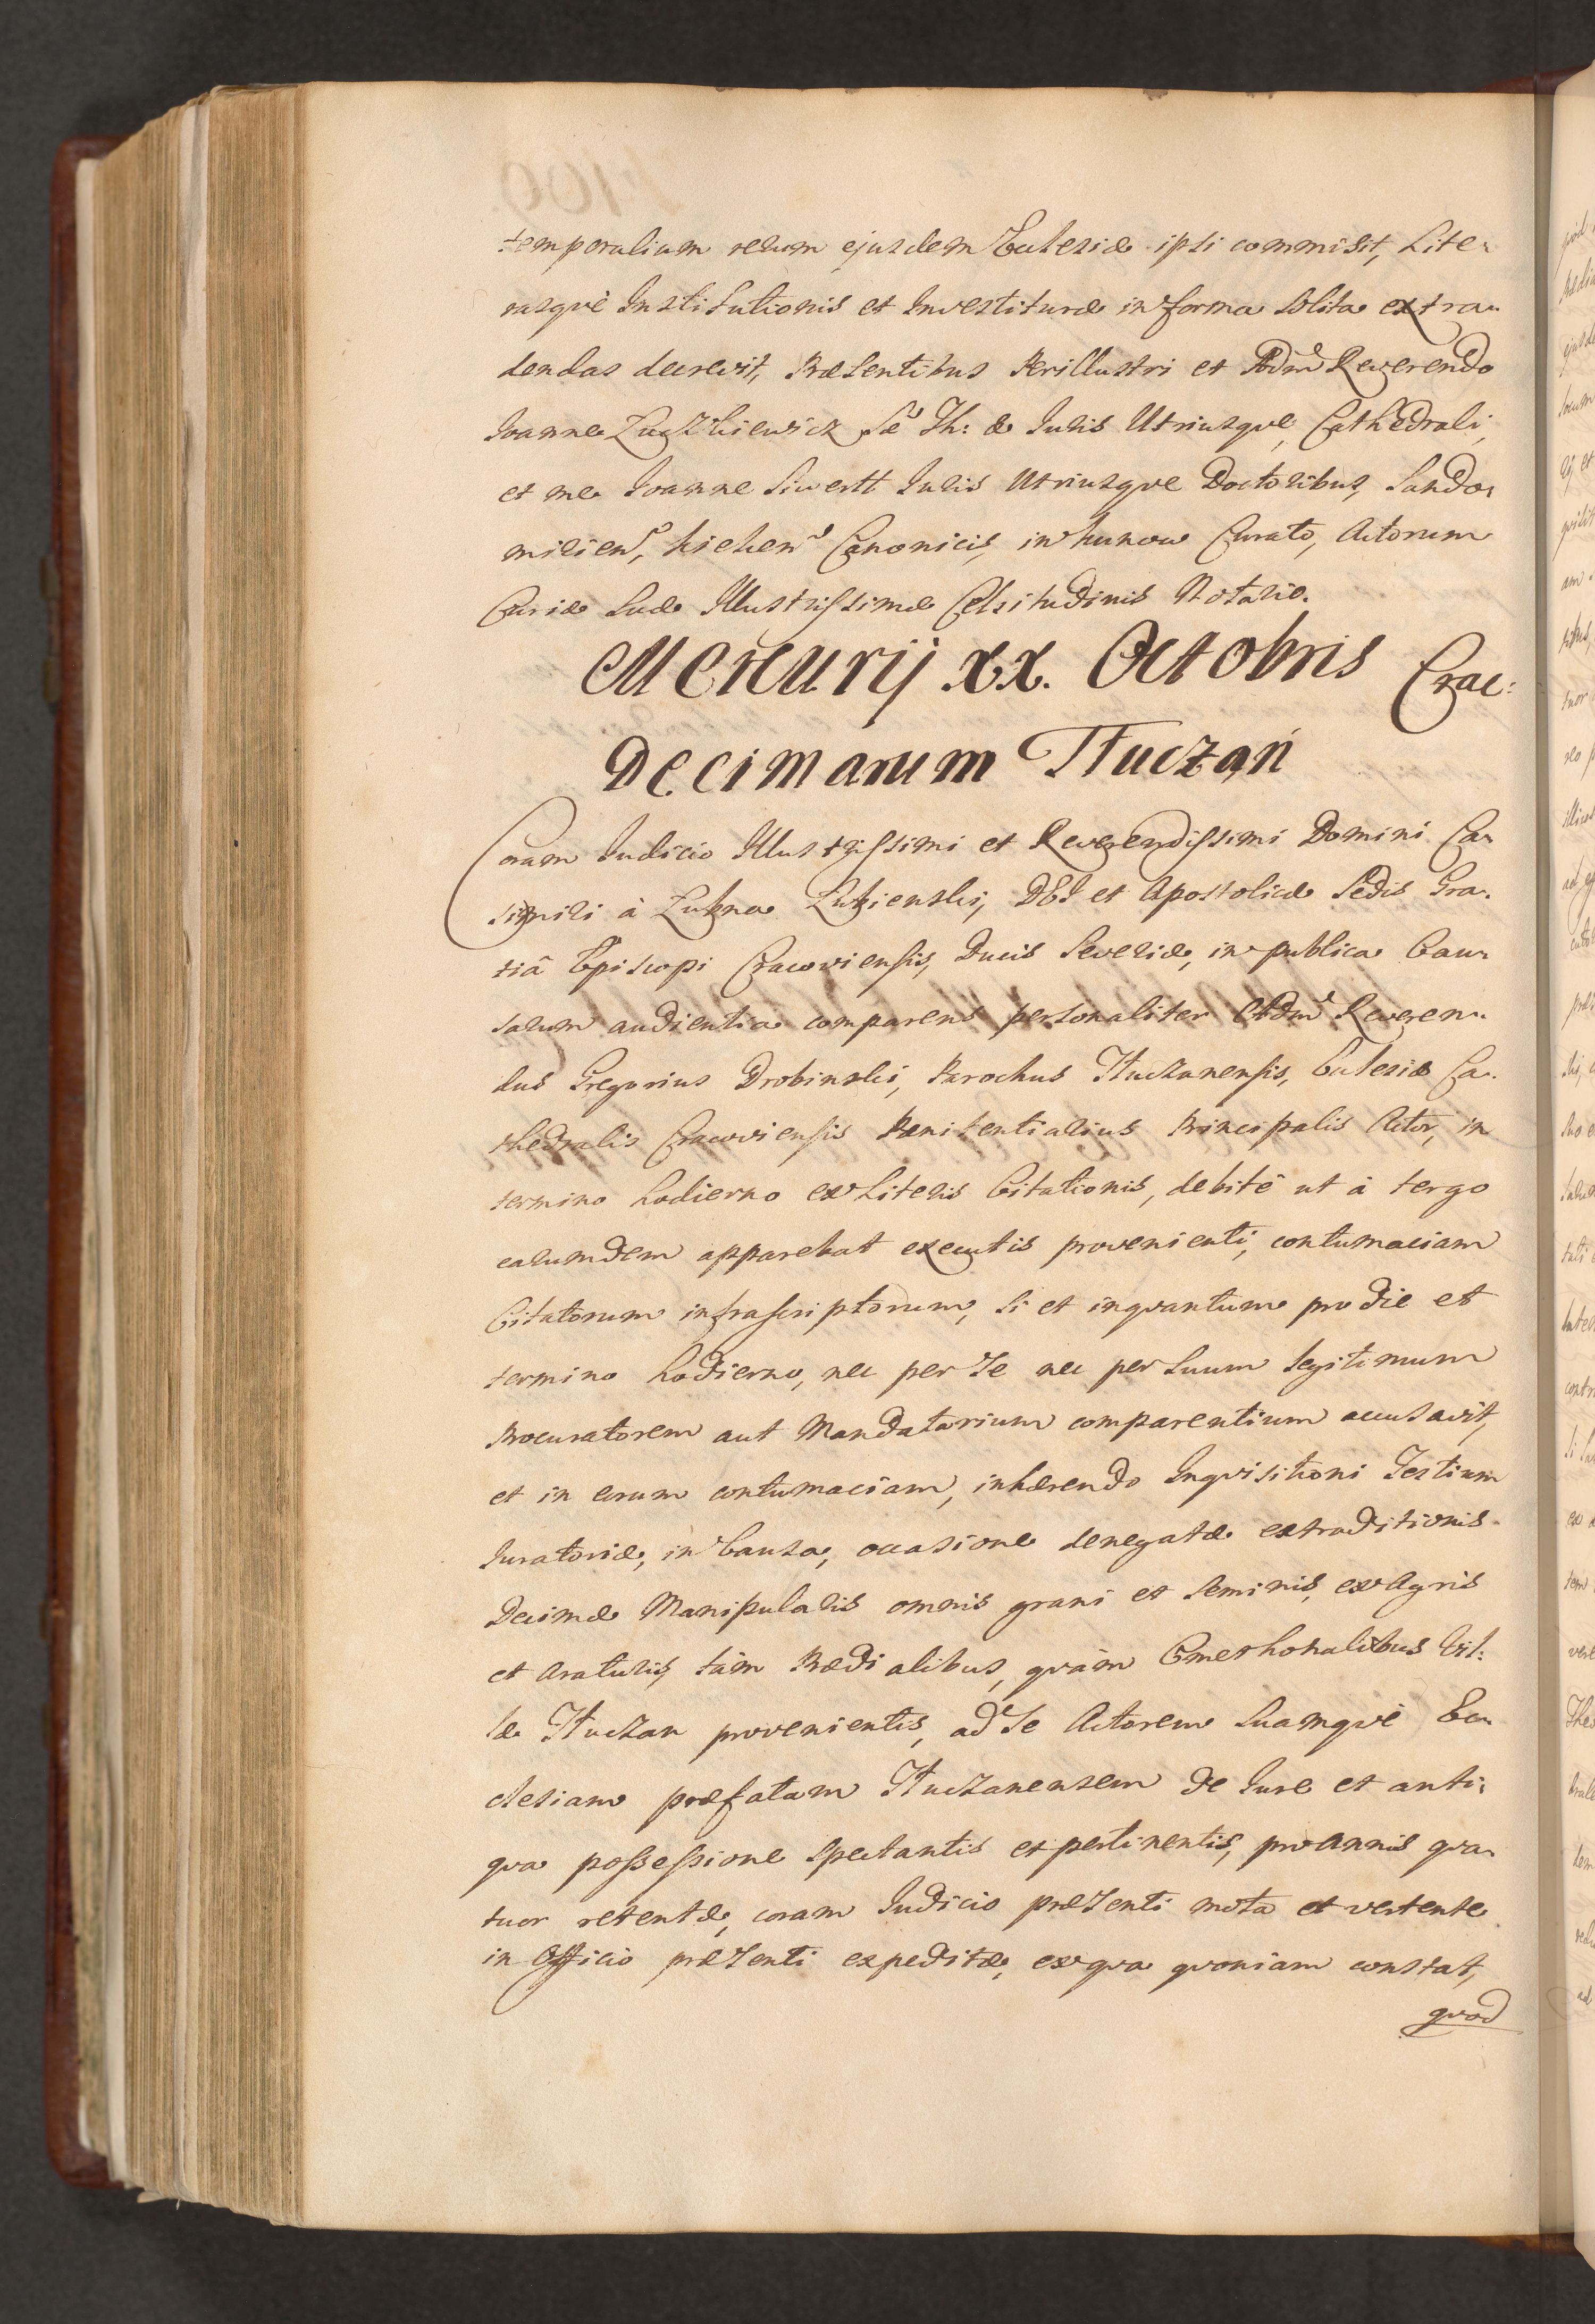 temporalium rerum ejusdem Ecclesiæ ipsi commisit, Lite-
rasquè Institutionis et Investituræ in forma solita extra-
dendas decrevit, Præsentibus Perillustri et Adm Reverendo
Ioanne Luczkiewicz Sæ Th: & Iuris Utriusque, Cathedrali,
et me Ioanne Siwertt Iuris Utriusque Doctoribus, Sando-
mirien, kielcen Canonicis, in Curato, Actorum
Curiæ Suæ Illustrissimæ Celsitudinis Notario.
Mercurij xx. Octobris Crac:
Decimarum Tłuczań
Coram Iudicio Illustrissimi et Reverendissimi Domini Ca-
simiri à Łubna Łubienski, DEI et Apostolicæ Sedis Gra-
tiâ Episcopi Cracoviensis, Ducis Severiæ, in publica Cau-
sarum audientia comparens personaliter Adm Reveren-
dus Gregorius Drobinski, Parochus Tłuczanensis, Ecclesiæ Ca-
thedralis Cracoviensis Pænitentiarius Principalis Actor, in
termino hodierno ex Literis Citationis, debitè ut à tergo
earumdem apparebat executis provenienti, contumaciam
Citatorum infrascriptorum, si et inquantum pro die et
termino hodierno, nec per se nec per suum legitimum
Procuratorem aut Mandatarium comparentium accusavit,
et in eorum contumaciam, inhærendo Inquisitioni Testium
Iuratoriæ, in Causa, occasione denegatæ extraditionis
Decimæ Manipularis omnis grani et seminis, ex Agris
et Araturis, tàm Prædialibus, quàm Cmethonalibus Vil-
læ Tłuczan provenientis, ad se Actorem Suamquè Ec-
clesiam præfatam Tłuczanensem de Iure et anti-
qua possessione spectantis et pertinentis, pro Annis qua-
tuor retentæ, coram Iudicio præsenti mota et vertente
in Officio præsenti expeditæ, ex qua quoniam constat,
quod